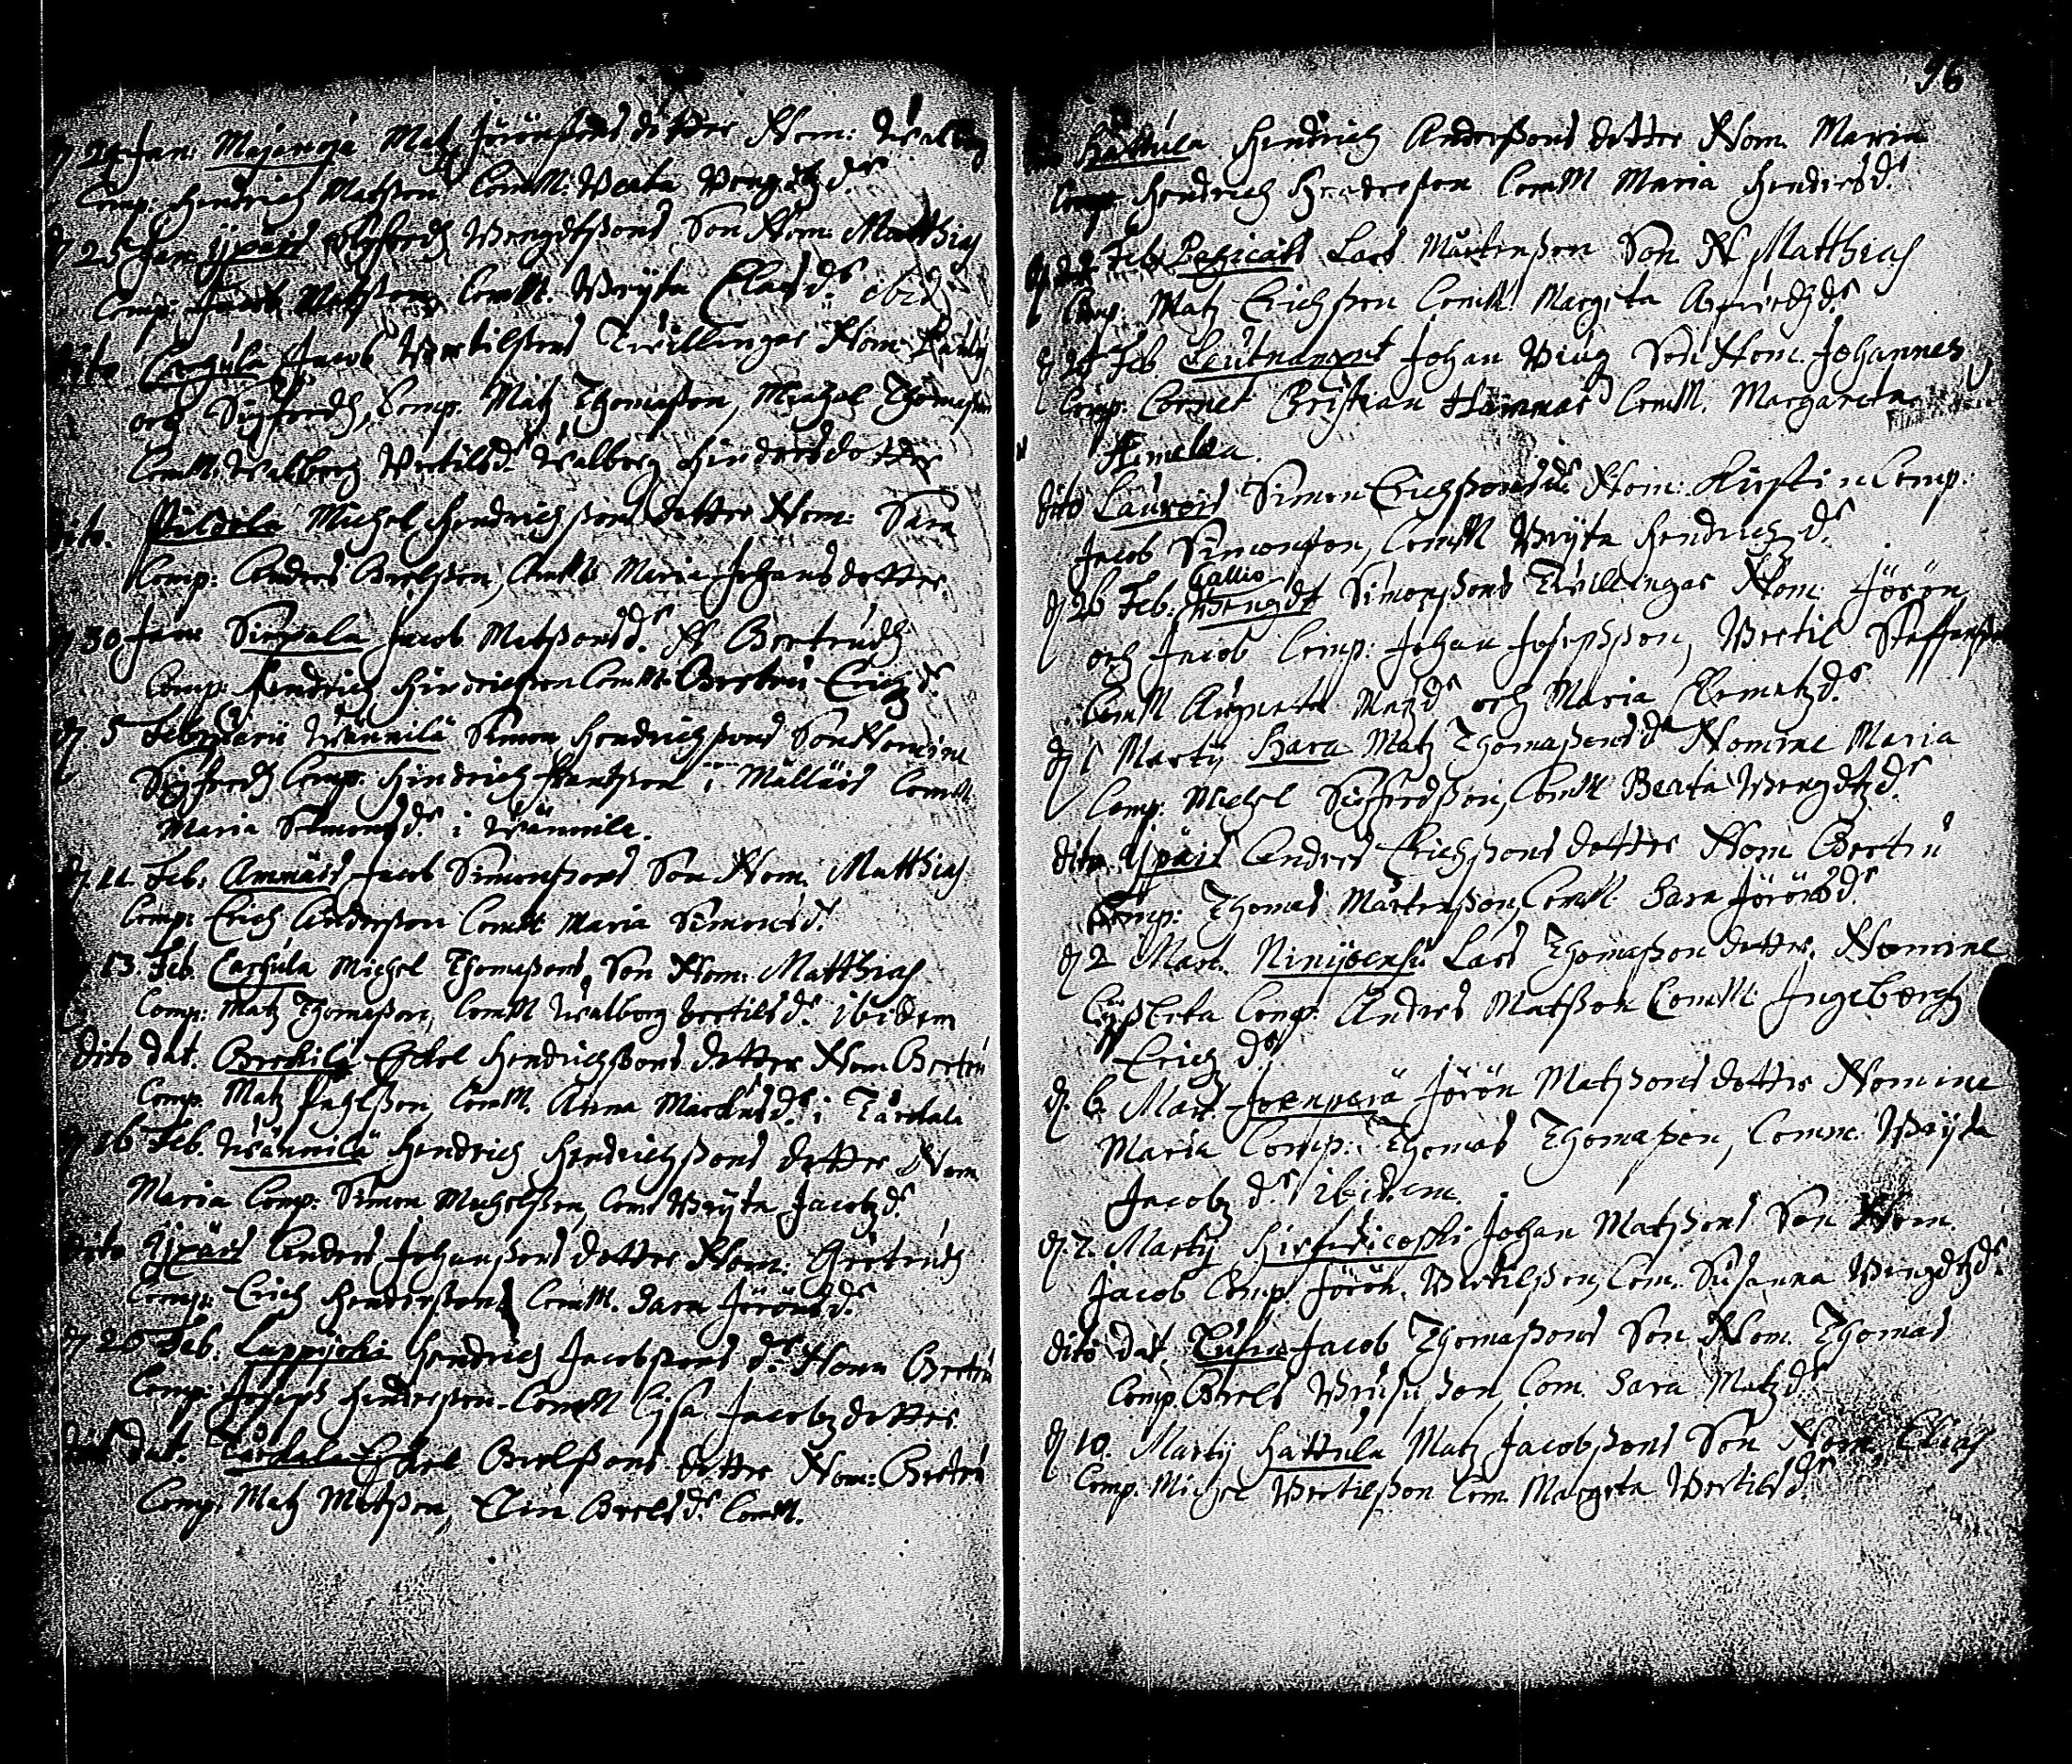 d 24 Jan: Majanoja Matz Jörönßons dotter Nom: Walborg
Comp: Hendrich Matzson ComM: Berta Bengdtz dr
d 25 Jan Ypäis Sigfredh Bengdtßons Son Nom: Matthias
Comp: Jacob Matzßon ComM. Bryta Clas dr ibid
dito Carhula Jacob Bertilßons Twillingar Nom:
och Sigfredh, Comp. Matz Thomaßon, Michel Thomaßon
ComM: Walborg Bertilsdr Walborg Hindersdotter
dito. Pildila Michel Hendrichßons dotter Nom: Sara
Comp: Anders Brelßon, ComM: Maria Johansdotter
d 30 Jan Sierala Jacob Matzßons dr N Gertrudh
Comp: Hendrich Hindrichson ComM: Gertru Erichz dr
d. 5 Februarii Wännilä Simon Hendrichßons Son Nomine
Sigfredh Comp: Hindrich Frantzson i Mälläis ComM
Maria Simons dr i Wännile.
d. 11. Feb: Ammäis Jacob Simonßons Son Nom. Matthias
Comp: Erich Anderßon ComM: Maria Simons dr
d 13. Feb. Carhula Michel Thomaßons Son Nom: Matthias
Comp: Matz Thomaßon, ComM Walborg bertils dr ibidem
dito dat. Brekilä Eskel Hindrichßons dotter Nom Gertru
Comp. Matz Pahlßon, ComM. Anna Markus dr i Tärtala
d 16 Feb. Wännilä Hendrich Hendrichßons dotter Nom
Maria Comp: Simon Michelßon, Com Bryta Jacobz dr
dito Ypäis Anders Johanßons dotter Nom: Gertrudh
Comp: Erich Henderßon ComM. Sara Jöröns dr
d 20 Feb: Lappijoki Hendrich Jacobßons dr Nom Gertru
Comp: Joseph Henderßon ComM Lijsa Jacobz dotter
dito dat. Tärtala Eskel Brelßons dotter Nom: Gertru
Comp: Matz Matzßon, Elin Brels dr ComM.
96
Hattula Hendrich Anderßons dotter Nom. Maria
Comp Hendrich Henderßon ComM Maria Henders dr
Feb Lars Mårtenßon Son N Matthias
Comp: Matz Erichßon ComM: Margeta dr
d 24 Feb Leutnament Johan Son Nom. Johannes
Comp: Cornet Christian ComM. Margareta
dito Laurois Simon Erichßons dr Nom: Kirstin Comp:
Jacob Simonßon, ComM Bryta Hendrichz dr
Gallio
d 26 Feb: Bengdt Simonßons Twillingar Nom: Jörön
och Jacob Comp: Johan Josephßon, Bertil Staffanßon
ComM Matz dr och Maria Clemetz dr
d 1 Martij Hara Matz Thomaßons dr Nomine Maria
Comp: Michel Sigfredßon, ComM Beata Bengdtz dr
dito. Ypäis Anders Erichßons dotter Nom Gertru
Comp: Thomas Mårtenßon, ComM Sara Jöröns dr
d 2 Mart. Ninijoensu Lars Thomaßon dotter. Nomine
Lijsbeta Comp: Anders Matßon ComM: Ingeborgh
Erichz dr
d. 6. Mart. Joenperä Jörön Matzßons dotter Nomine
Maria Comp: Thomas Thomaßon, Comm: Bryta
Jacobz dr ibidem
d. 7. Martij Hirfwicoski Johan Matzßons Son Nom.
Jacob Comp: Jörön Bertilßon, Com. Susanna Bengdtz dr
dito dat. Tusa Jacob Thomaßons Son Nom. Thomas
Comp. Brels Brusußon Com. Sara Matz dr
d 10. Martij Hattula Matz Jacobßons Son Nom. Elias
Comp. Michel Bertilßon Com. Margeta Bertils dr